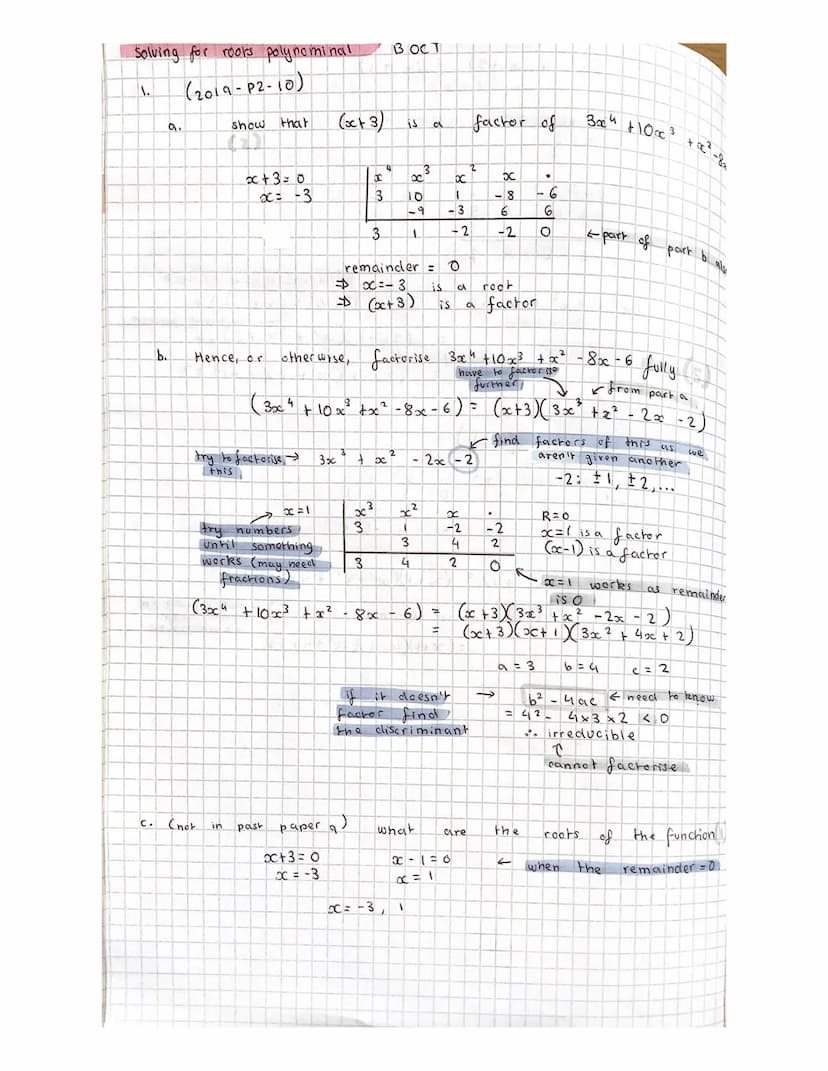 Solving for roots polynominal 13 OCT
1. (2019-P2-10)
a. show that (x+3) is a factor of 3x⁴ +10x³ + x² -8x
x+3=0
x= -3
x⁴ x³ x² x .
3 10 1 -8 -6
-9 -3 6 6
3 1 -2 -2 0 ← part of part b also
remainder = 0
⇒ x=-3 is a root
⇒ (x+3) is a factor
b. Hence, or otherwise, factorise 3x⁴ +10x³ + x² -8x -6 fully
have to factorise
further
← from part a
(3x⁴ + 10x³ +x² -8x -6) = (x+3)(3x³ +x² - 2x -2)
← find factors of this as we
aren't given another
try to factorise → 3x³ + x² - 2x -2
this
-2: ±1, ±2,...
→ x=1
try numbers
until something
works (may need
fractions)
x³ x² x .
3 1 -2 -2
3 4 2
3 4 2 0
R=0
x=1 is a factor
(x-1) is a factor
x=1 works as remainder
is 0
(3x⁴ +10x³ +x² -8x -6) = (x+3)(3x³ +x² -2x -2)
= (x+3)(x+1)(3x² + 4x + 2)
a = 3 b = 4 c = 2
if it doesn't →
factor find
the discriminant
b² - 4ac ← need to know
= 4² - 4×3×2 < 0
∴ irreducible
↑
cannot factorise
c. (not in past paper q) what are the roots of the function
x+3=0 x-1=0 ← when the remainder=0
x=-3 x=1
x=-3, 1